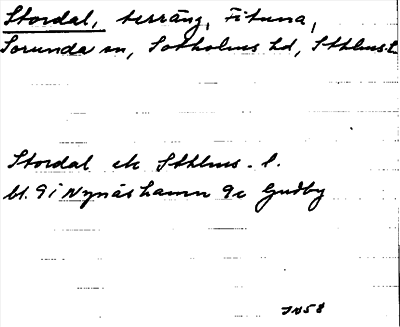 Stordal, terräng, Fituna,
Sorunda sn, Sotholms hd, Sthlms l.
Stordal ek Sthlms. l.
bl. 9i Nynäshamn 9c Gudby
JN58